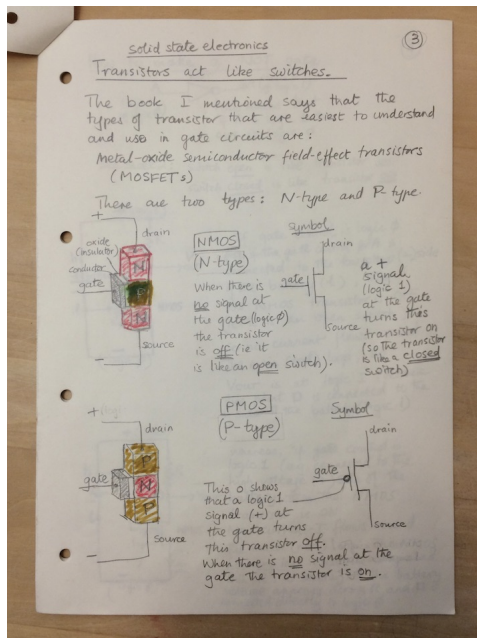 ③
solid state electronics
Transistors act like switches.
The book I mentioned says that the
types of transistor that are easiest to understand
and use in gate circuits are:
Metal-oxide semiconductor field-effect transistors
(MOSFETs)
There are two types: N-type and P-type.
+
drain
oxide
(insulator)
conductor
gate
N
P
N
source
-
NMOS
(N-type)
When there is
no signal at
the gate (logic 0)
the transistor
is off (ie it
is like an open switch).
Symbol
drain
gate
source
a +
signal
(logic 1)
at the gate
turns this
transistor on
(so the transistor
is like a closed
switch)
+
drain
gate
P
N
P
source
-
PMOS
(P-type)
Symbol
drain
gate
source
This o shows
that a logic 1
signal (+) at
the gate turns
this transistor off.
When there is no signal at the
gate the transistor is on.